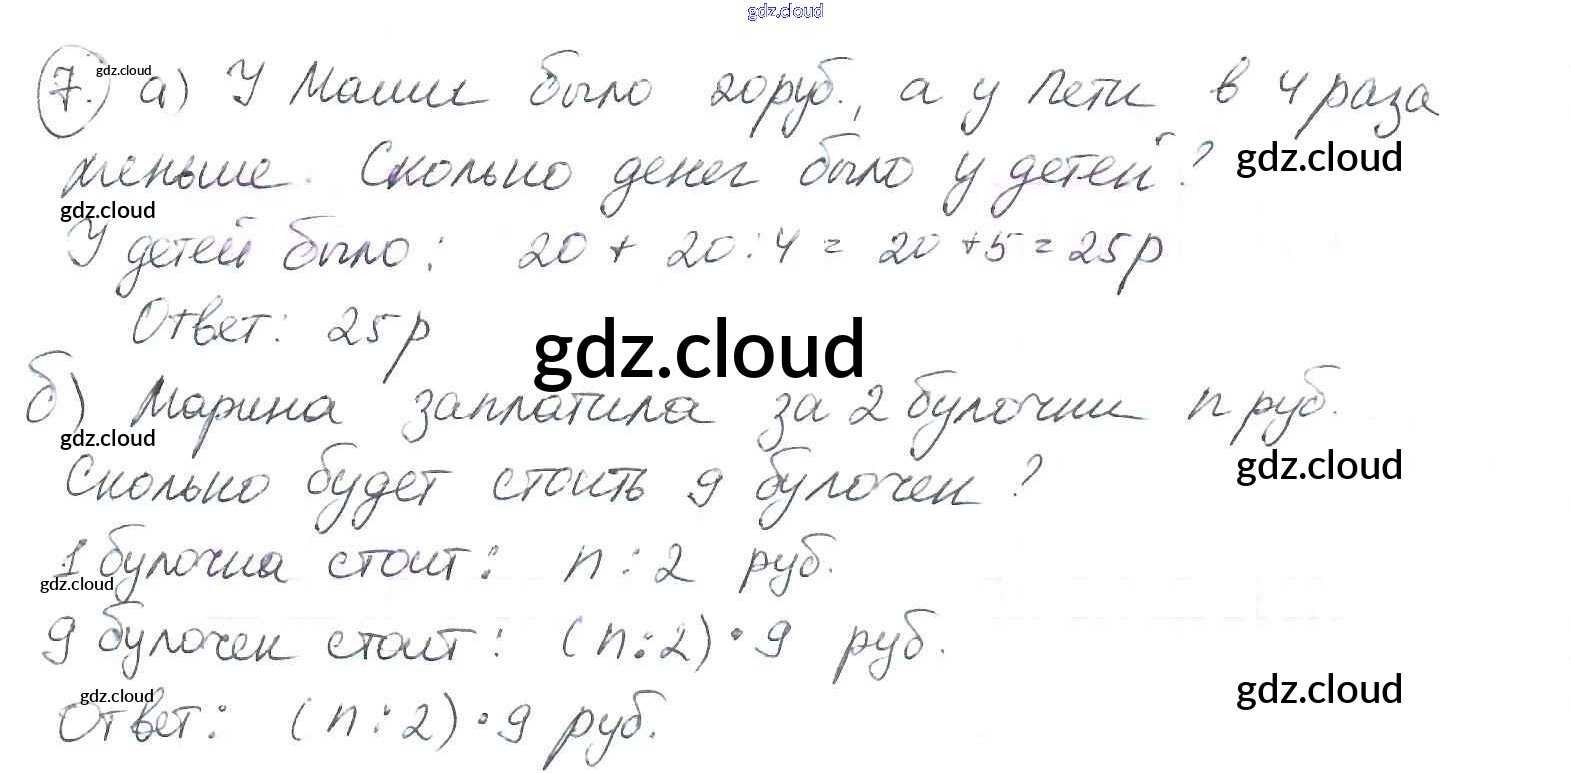 gdz.cloud
7. gdz.cloud а) У Маши было 20 руб., а у Пети в 4 раза
меньше. Сколько денег было у детей? gdz.cloud
gdz.cloud
У детей было: 20 + 20 : 4 = 20 + 5 = 25 р
Ответ: 25 р
gdz.cloud
б) Марина заплатила за 2 булочки n руб.
gdz.cloud
gdz.cloud
Сколько будет стоить 9 булочек?
1 булочка стоит: n : 2 руб.
gdz.cloud
9 булочек стоит: (n : 2) • 9 руб.
gdz.cloud
gdz.cloud
Ответ: (n : 2) • 9 руб.